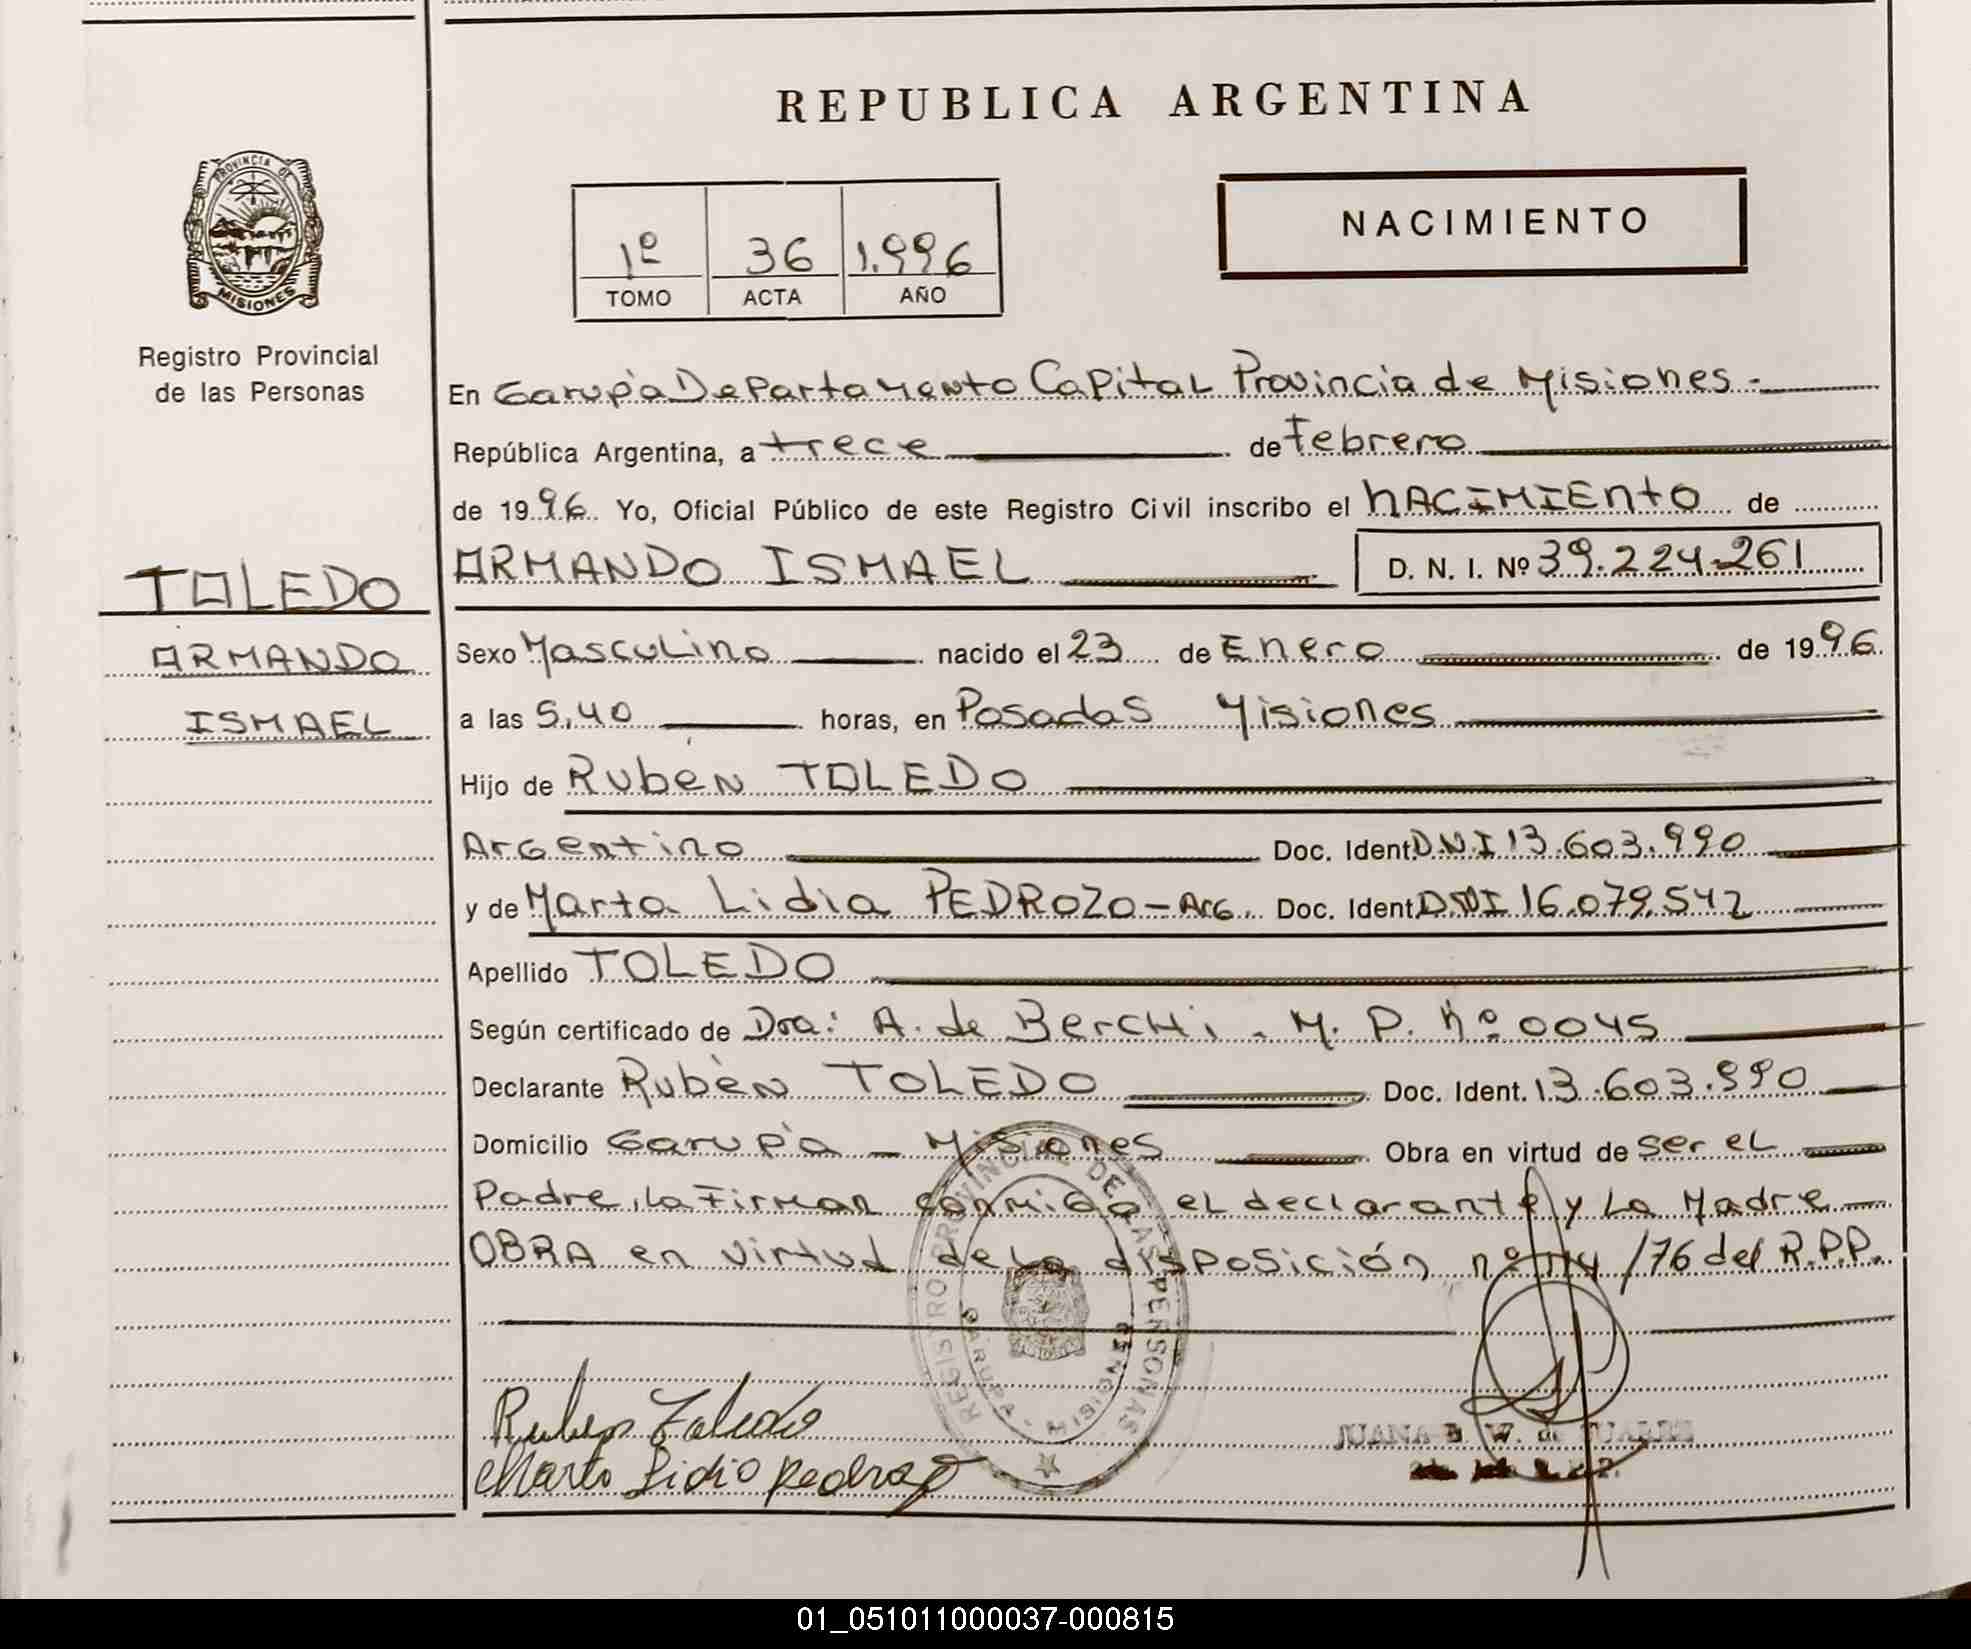 REPUBLICA ARGENTINA
PROVINCIA DE
MISIONES
Registro Provincial
de las Personas
1º 36 1.996
TOMO ACTA AÑO
NACIMIENTO
En Garupà Departamento Capital Provincia de Misiones.-
República Argentina, a trece de Febrero
de 1996. Yo, Oficial Público de este Registro Civil inscribo el NACIMIENTO de
TOLEDO
ARMANDO
ISMAEL
ARMANDO ISMAEL D. N. I. Nº 39.224.261
Sexo Masculino nacido el 23 de Enero de 1996.
a las 5,40 horas, en Posadas Misiones
Hijo de Ruben TOLEDO
Argentino Doc. Ident. D.N.I 13.603.990
y de Marta Lidia PEDROZO - Arg. Doc. Ident. DNI 16.079.542
Apellido TOLEDO
Según certificado de Dra: A. de Berchi. M. P. Nº 0045
Declarante Rubèn TOLEDO Doc. Ident. 13.603.990
Domicilio Garupà - Misiones Obra en virtud de ser el
Padre, la Firman conmigo el declarante y La Madre
OBRA en virtud de la disposición nº 114/76 del R.P.P.
REGISTRO PROVINCIAL DE LAS PERSONAS
GARUPA - MISIONES
Ruben Toledo
Marta Lidia Pedrozo
01_051011000037-000815